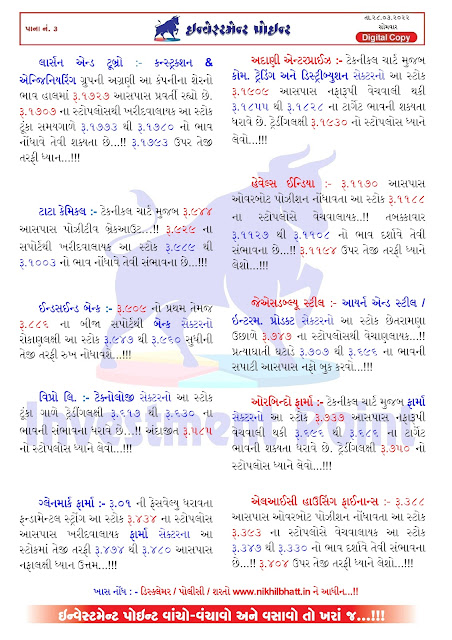 પાના નં. 3
ઇન્વેસ્ટમેન્ટ પોઇન્ટ
તા.૨૮.૦૩.૨૦૨૨
સોમવાર
Digital Copy
લાર્સન એન્ડ ટુબ્રો :- કન્સ્ટ્રકશન &
એન્જિનિયરિંગ ગ્રુપની અગ્રણી આ કંપનીના શેરનો
ભાવ હાલમાં રૂ.૧૭૨૭ આસપાસ પ્રવર્તી રહ્યો છે.
રૂ.૧૭૦૭ ના સ્ટોપલોસથી ખરીદવાલાયક આ સ્ટોક
ટુંકા સમયગાળે રૂ.૧૭૭૩ થી રૂ.૧૭૮૦ નો ભાવ
નોંધાવે તેવી શક્યતા છે...!! રૂ.૧૭૯૩ ઉપર તેજી
તરફી ધ્યાન...!!!
ટાટા કેમિકલ :- ટેકનીકલ ચાર્ટ મુજબ રૂ.૯૪૪
આસપાસ પોઝીટીવ બ્રેકઆઉટ...!! રૂ.૯૨૯ ના
સપોર્ટથી ખરીદવાલાયક આ સ્ટોક રૂ.૯૮૯ થી
રૂ.૧૦૦૩ નો ભાવ નોંધાવે તેવી સંભાવના છે...!!!
ઈન્ડસઈન્ડ બેન્ક :- રૂ.૯૦૯ નો પ્રથમ તેમજ
રૂ.૮૮૬ ના બીજા સપોર્ટથી બેન્ક સેક્ટરનો
રોકાણલક્ષી આ સ્ટોક રૂ.૯૪૭ થી રૂ.૯૬૦ સુધીની
તેજી તરફ રુખ નોંધાવશે...!!!
વિપ્રો લિ. :- ટેકનોલોજી સેક્ટરનો આ સ્ટોક
ટુંકા ગાળે ટ્રેડીંગલક્ષી રૂ.૬૧૭ થી રૂ.૬૩૦ ના
ભાવની સંભાવના ધરાવે છે...!! અંદાજીત રૂ.૫૮૫
નો સ્ટોપલોસ ધ્યાને લેવો...!!!
ગ્લેનમાર્ક ફાર્મા :- રૂ.૦૧ ની ફેસવેલ્યુ ધરાવતા
ફન્ડામેન્ટલ સ્ટ્રોંગ આ સ્ટોક રૂ.૪૩૪ ના સ્ટોપલોસ
આસપાસ ખરીદવાલાયક ફાર્મા સેક્ટરના આ
સ્ટોકમાં તેજી તરફી રૂ.૪૭૪ થી રૂ.૪૮૦ આસપાસ
નફાલક્ષી ધ્યાન ઉત્તમ...!!!
અદાણી એન્ટરપ્રાઈઝ :- ટેકનીકલ ચાર્ટ મુજબ
કોમ. ટ્રેડિંગ અને ડિસ્ટ્રીબ્યુશન સેક્ટરનો આ સ્ટોક
રૂ.૧૯૦૯ આસપાસ નફારૂપી વેચવાલી થકી
રૂ.૧૮૫૫ થી રૂ.૧૮૨૮ ના ટાર્ગેટ ભાવની શક્યતા
ધરાવે છે. ટ્રેડીંગલક્ષી રૂ.૧૯૩૦ નો સ્ટોપલોસ ધ્યાને
લેવો...!!!
હેવેલ્સ ઈન્ડિયા :- રૂ.૧૧૭૦ આસપાસ
ઓવરબોટ પોઝીશન નોંધાવતા આ સ્ટોક રૂ.૧૧૮૮
ના સ્ટોપલોસે વેચવાલાયક..!! તબક્કાવાર
રૂ.૧૧૨૭ થી રૂ.૧૧૦૮ નો ભાવ દર્શાવે તેવી
સંભાવના છે...!! રૂ.૧૧૯૪ ઉપર તેજી તરફી ધ્યાને
લેશો...!!!
જેએસડબ્લ્યુ સ્ટીલ :- આયર્ન એન્ડ સ્ટીલ /
ઇન્ટરમ. પ્રોડક્ટ સેક્ટરનો આ સ્ટોક છેતરામણા
ઉછાળે રૂ.૭૪૭ ના સ્ટોપલોસથી વેચાણલાયક...!!
પ્રત્યાઘાતી ઘટાડે રૂ.૭૦૭ થી રૂ.૬૯૬ ના ભાવની
સપાટી આસપાસ નફો બુક કરવો...!!!
ઓરબિન્ટો ફાર્મા :- ટેકનીકલ ચાર્ટ મુજબ ફાર્મા
સેક્ટરનો આ સ્ટોક રૂ.૭૩૩ આસપાસ નફારૂપી
વેચવાલી થકી રૂ.૬૯૬ થી રૂ.૬૮૬ ના ટાર્ગેટ
ભાવની શક્યતા ધરાવે છે. ટ્રેડીંગલક્ષી રૂ.૭૫૦ નો
સ્ટોપલોસ ધ્યાને લેવો...!!!
એલઆઈસી હાઉસિંગ ફાઈનાન્સ :- રૂ.૩૮૮
આસપાસ ઓવરબોટ પોઝીશન નોંધાવતા આ સ્ટોક
રૂ.૩૯૩ ના સ્ટોપલોસે વેચવાલાયક આ સ્ટોક
રૂ.૩૪૭ થી રૂ.૩૩૦ નો ભાવ દર્શાવે તેવી સંભાવના
છે...!! રૂ.૪૦૪ ઉપર તેજી તરફી ધ્યાને લેશો...!!!
ખાસ નોંધ : - ડિસ્ક્લેમર / પોલીસી / શરતો www.nikhilbhatt.in ને આધીન...!!
ઇન્વેસ્ટમેન્ટ પોઇન્ટ વાંચો-વંચાવો અને વસાવો તો ખરાં જ...!!!